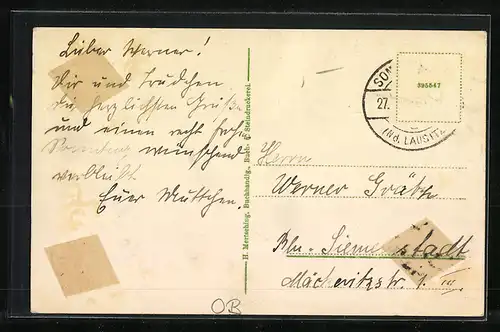 Lieber Werner!
Dir und Trudchen
die herzlichsten Grüße
und einen recht frohen
Sonntag wünschend
verbleibt
Euer Muttchen.
H. Mertsching, Buchhandlg., Buch- u. Steindruckerei.
SOM
27.
(Nd. LAUSITZ
395847
Herrn
Werner Gräbe
Bln. Siemensstadt
Mäckeritzstr. 1. III
OB